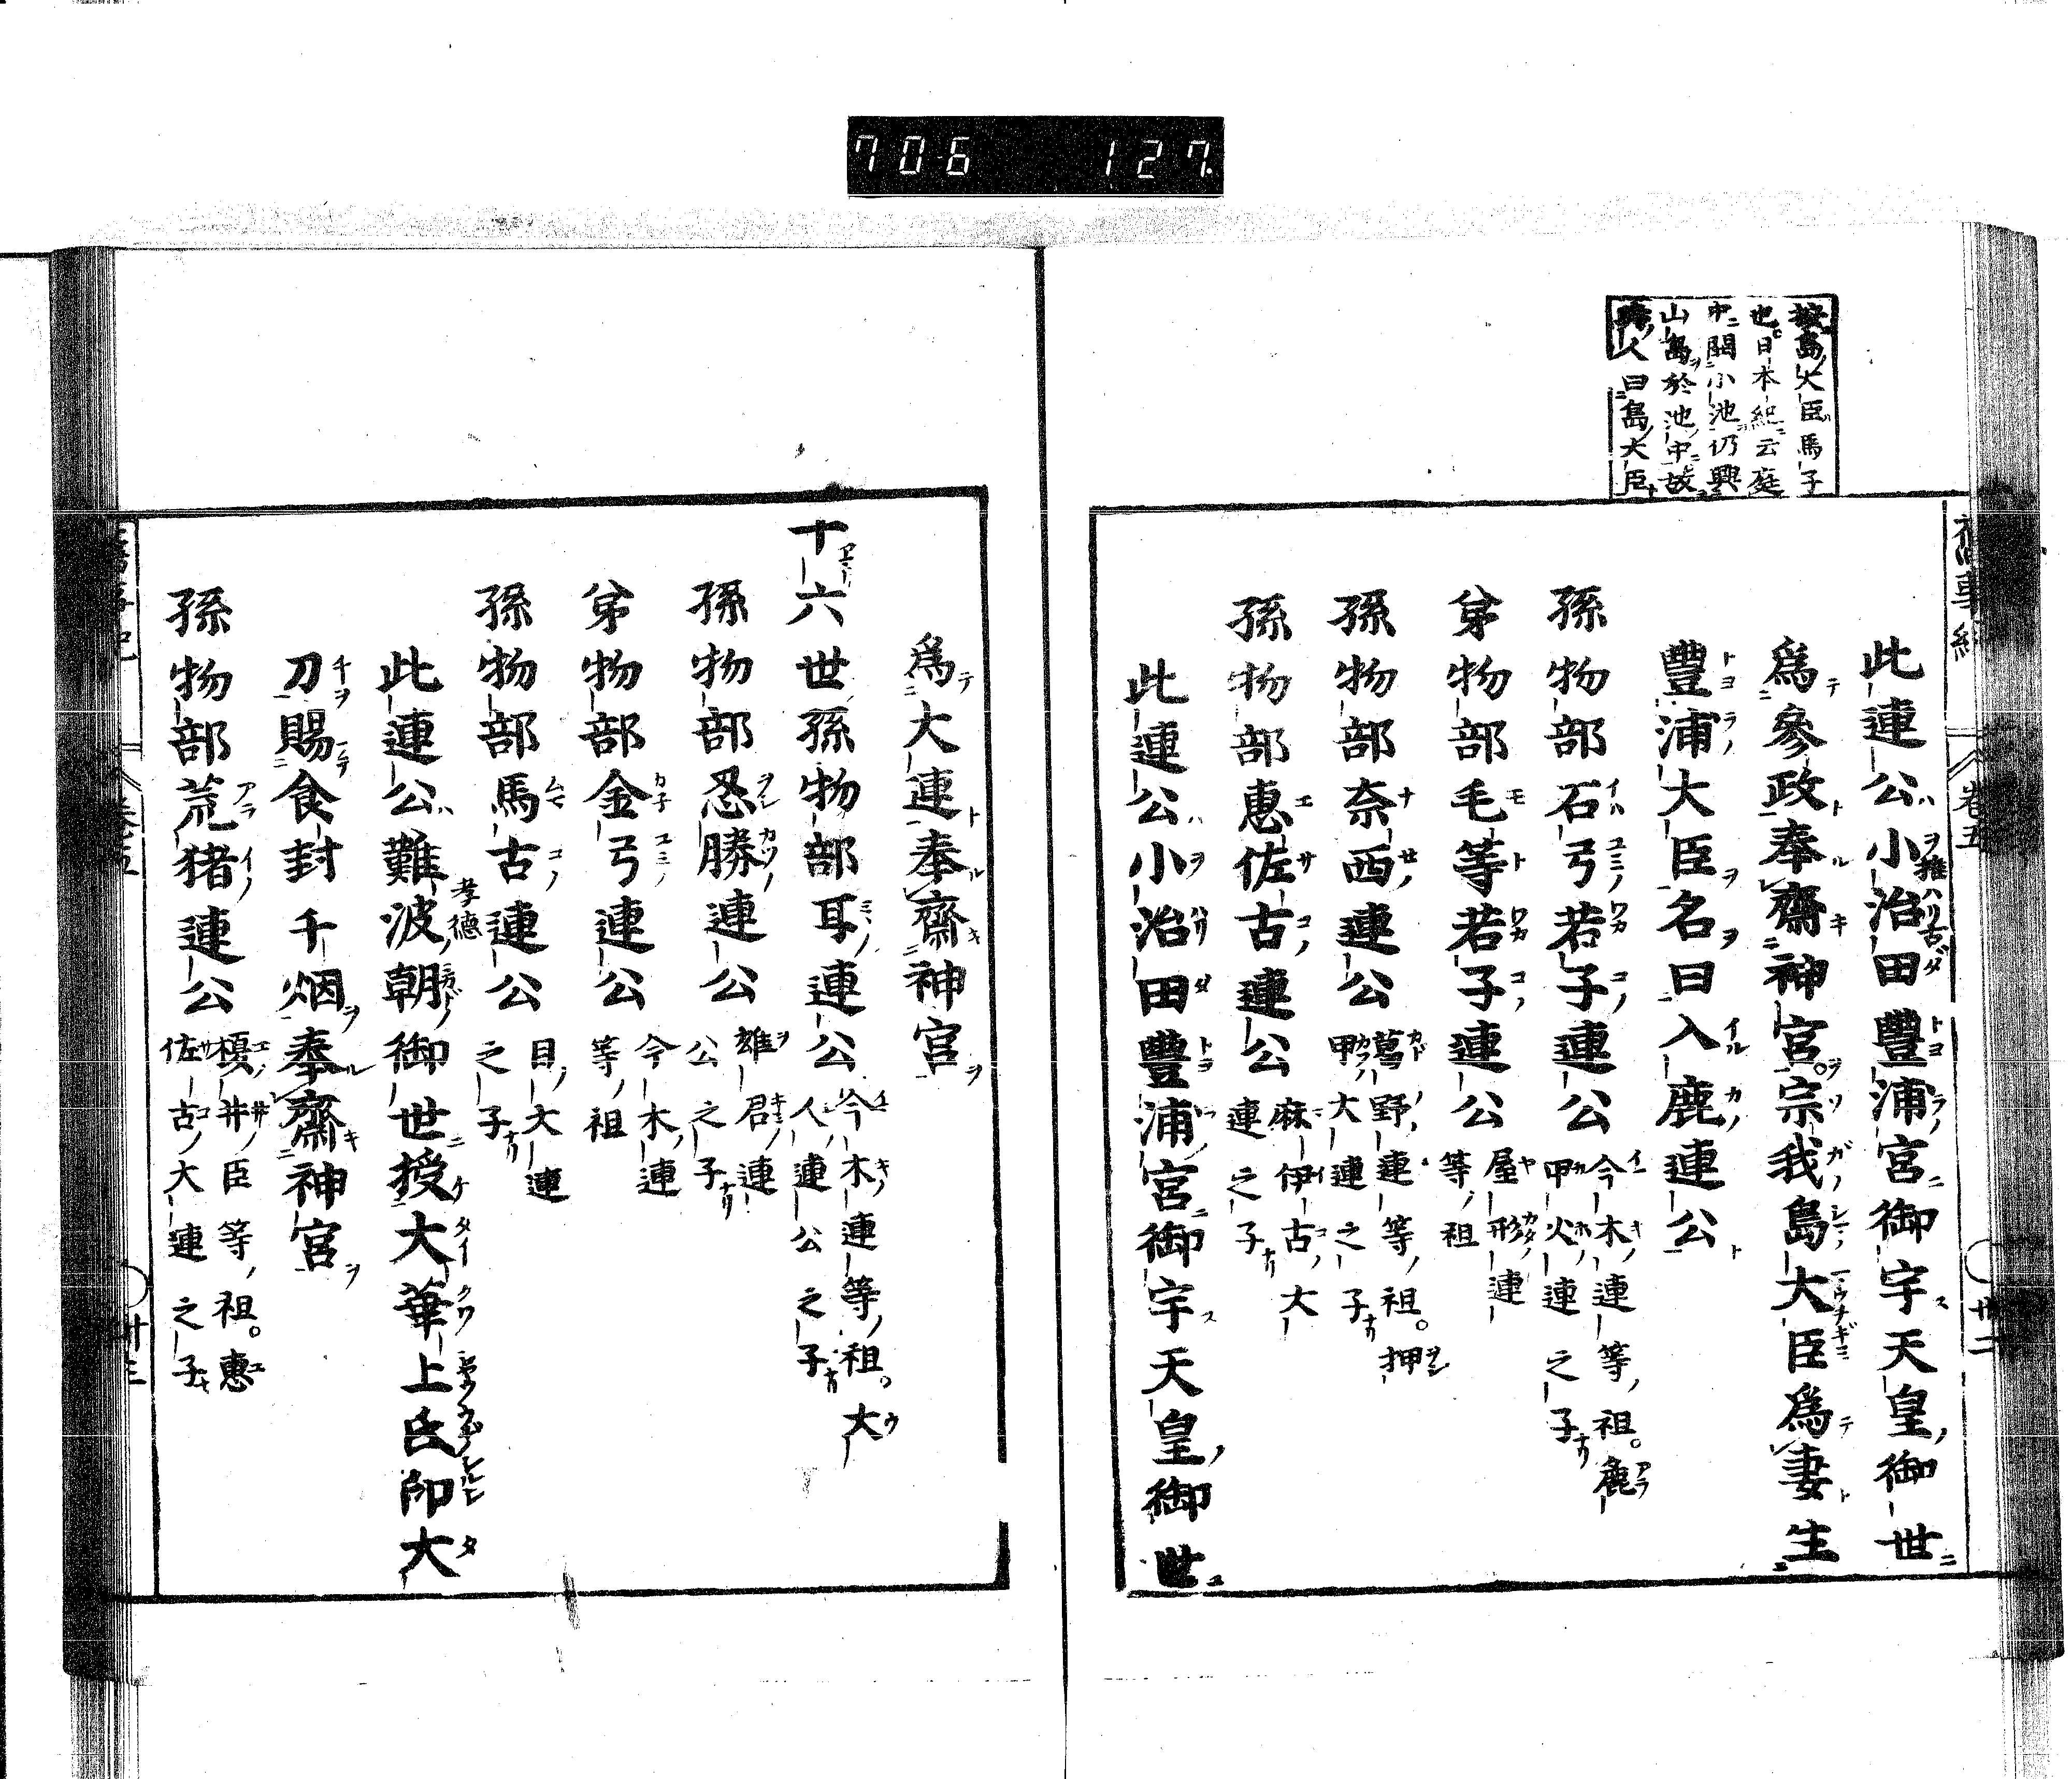 706 127
按島大臣馬子
也日本紀云庭
中開小池仍興
山島於池中故
時人曰島大臣
舊事紀 卷五 廿二
此連公小治田豐浦宮御宇天皇御世
推古
爲參政奉齋神宮宗我島大臣爲妻生
豐浦大臣名曰入鹿連公
孫物部石弓若子連公 今木連等祖。麁
甲火連之子
弟物部毛等若子連公 屋形連
等祖
孫物部奈西連公 葛野連等祖。押
甲大連之子
孫物部惠佐古連公 麻伊古大
連之子
此連公小治田豐浦宮御宇天皇御世
爲大連奉齋神宮
十六世孫物部耳連公 今木連等祖。大
人連公之子
孫物部忍勝連公 雄君連
公之子
弟物部金弓連公 今木連
等祖
孫物部馬古連公 目大連
之子
此連公難波朝御世授大華上氏印大
孝德
刀賜食封千烟奉齋神宮
孫物部荒猪連公 榎井臣等祖。惠
佐古大連之子
舊事紀 卷五 廿三